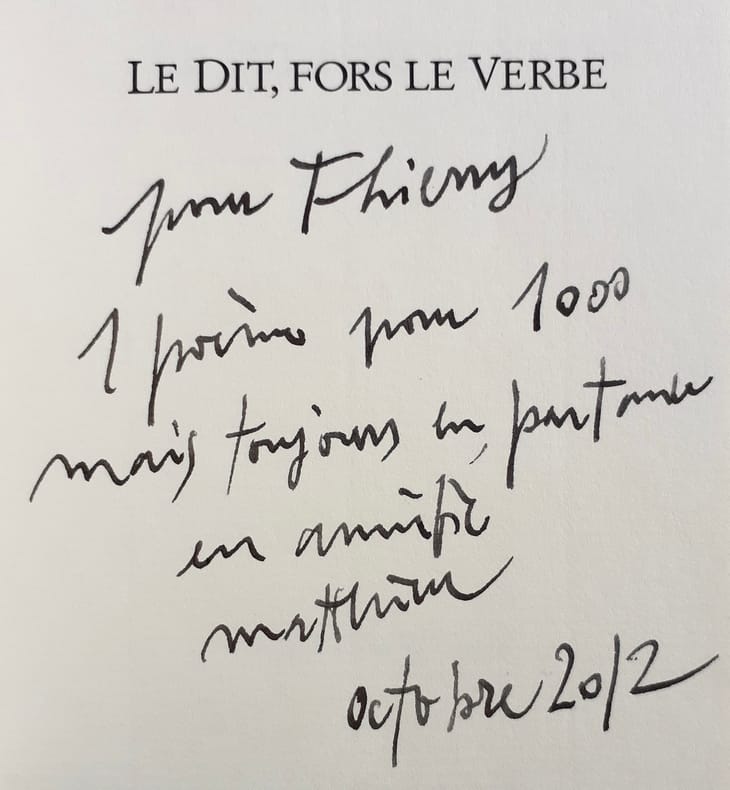 LE DIT, FORS LE VERBE
pour Thierry
1 poème pour 1000
mais toujours en partance
en amitié
matthieu
octobre 2012